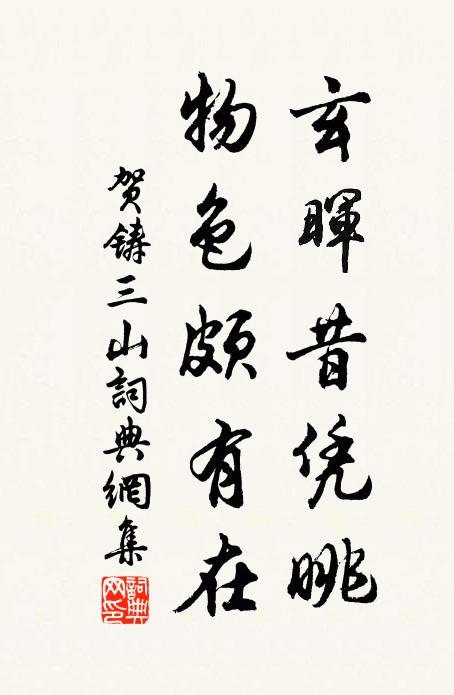 玄暉昔凭眺
物色頗有在
贺鑄三山詞典網集
詞典网印